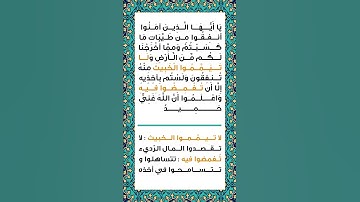 يَا أَيُّهَا الَّذِينَ آمَنُوا
أَنفِقُوا مِن طَيِّبَاتِ مَا
كَسَبْتُمْ وَمِمَّا أَخْرَجْنَا
لَكُم مِّنَ الْأَرْضِ وَلَا
تَيَمَّمُوا الْخَبِيثَ مِنْهُ
تُنفِقُونَ وَلَسْتُم بِآخِذِيهِ
إِلَّا أَن تُغْمِضُوا فِيهِ
وَاعْلَمُوا أَنَّ اللَّهَ غَنِيٌّ
حَمِيدٌ
لا تيمّموا الخبيث : لا
تقصدوا المال الرّديء
تُغمضوا فيه : تتساهلوا و
تتسامحوا في أخذه